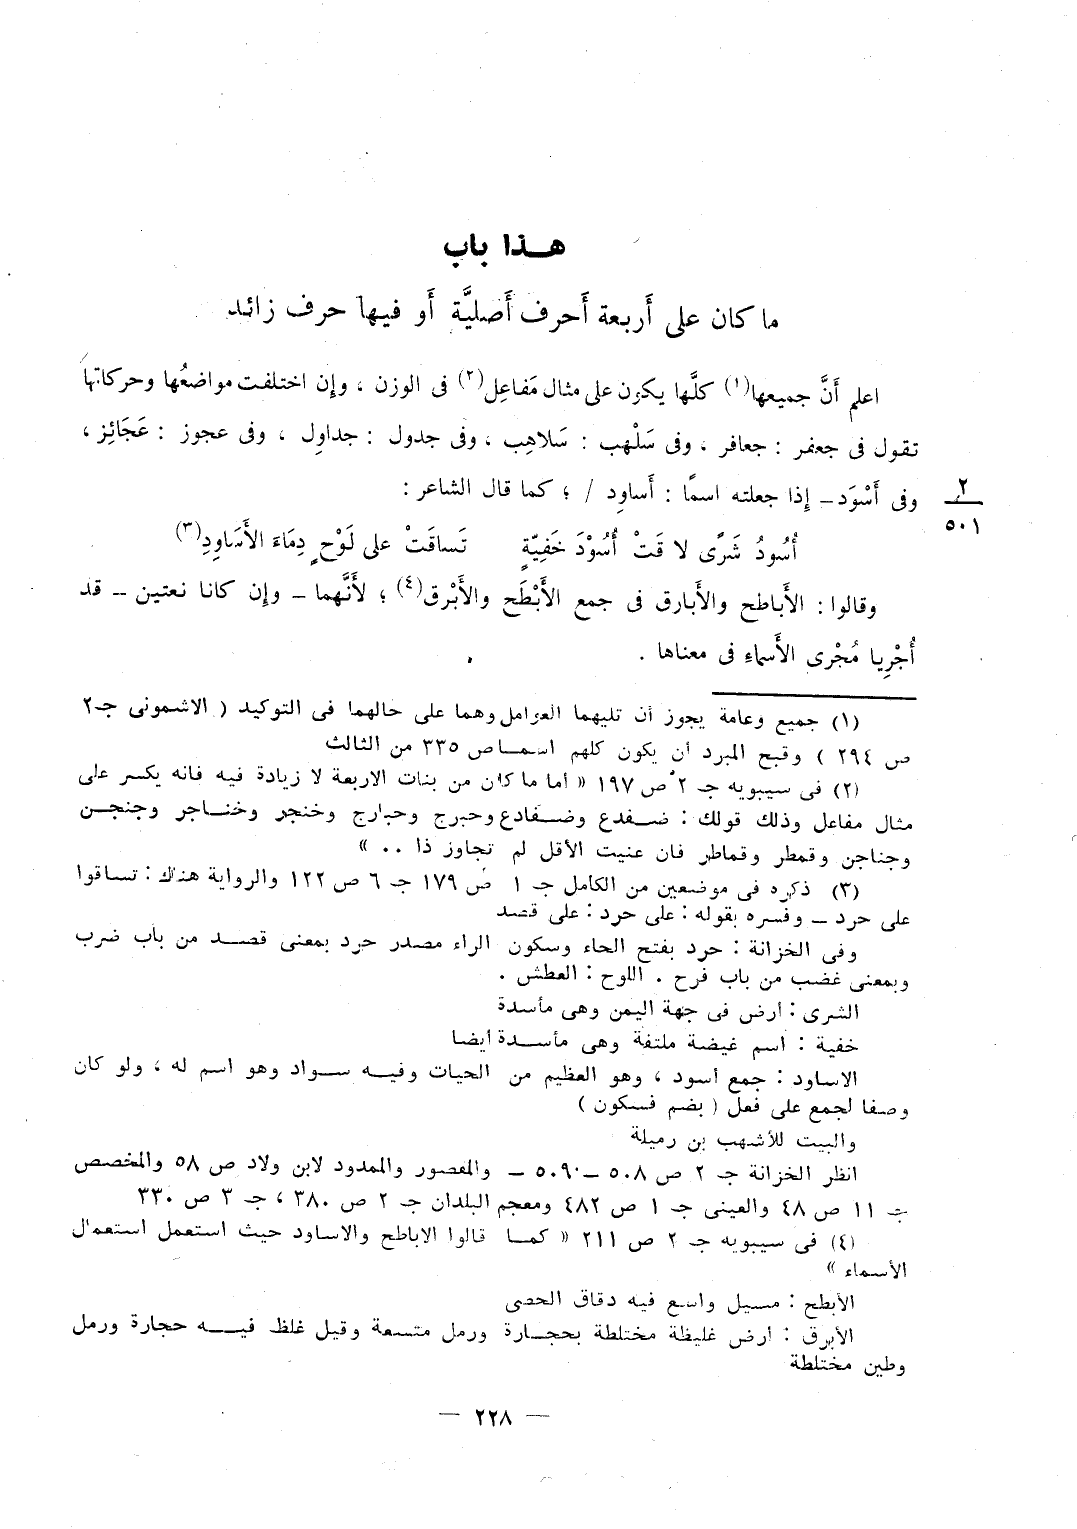 هــذا باب
ما كان على أَربعة أَحرف أَصليَّة أَو فيها حرف زائد
اعلم أَنَّ جميعها(١) كلَّها يكون على مثال مَفاعِل(٢) فى الوزن ، وإِن اختلفت مواضعُها وحركاتها
تقول فى جعفر : جعافر ، وفى سَلْهب : سَلاهِب ، وفى جدول : جداوِل ، وفى عجوز : عَجَائِز ،
وفى أَسْوَد ــ إِذا جعلته اسمًا : أَساوِد / ؛ كما قال الشاعر :
٢
٥٠١
أُسُودُ شَرًى لا قَتْ أُسُوْدَ خَفِيّةٍ تَساقَتْ على لَوْحٍ دِمَاءَ الأَسَاوِدِ(٣)
وقالوا : الأَباطح والأَبارق فى جمع الأَبْطَح والأَبْرق(٤) ؛ لأَنَّهما ــ وإِن كانا نعتين ــ قد
أُجْرِيا مُجْرى الأَسماءِ فى معناها .
(١) جميع وعامة يجوز أن تليهما العوامل وهما على حالهما فى التوكيد ( الاشمونى جـ٢
ص ٢٩٤ ) وقبح المبرد أن يكون كلهم اسمــا ص ٣٣٥ من الثالث
(٢) فى سيبويه جـ ٢ ص ١٩٧ « أما ما كان من بنات الاربعة لا زيادة فيه فانه يكسر على
مثال مفاعل وذلك قولك : ضــفدع وضــفادع وحبرج وحبارج وخنجر وخنــاجر وجنجن
وجناجن وقمطر وقماطر فان عنيت الأقل لم تجاوز ذا .. »
(٣) ذكره فى موضعين من الكامل جـ ١ ص ١٧٩ جـ ٦ ص ١٢٢ والرواية هناك : تساقوا
على حرد ــ وفسره بقوله : على حرد : على قصد
وفى الخزانة : حرد بفتح الحاء وسكون الراء مصدر حرد بمعنى قصــد من باب ضرب
وبمعنى غضب من باب فرح . اللوح : العطش .
الشرى : أرض فى جهة اليمن وهى مأسدة
خفية : اسم غيضة ملتفة وهى مأســدة أيضا
الاساود : جمع أسود ، وهو العظيم من الحيات وفيــه ســواد وهو اسم له ، ولو كان
وصفا لجمع على فعل ( بضم فسكون )
والبيت للأشهب بن رميلة
انظر الخزانة جـ ٢ ص ٥٠٨ ــ ٥٠٩ ــ والمقصور والممدود لابن ولاد ص ٥٨ والمخصص
جـ ١١ ص ٤٨ والعينى جـ ١ ص ٤٨٢ ومعجم البلدان جـ ٢ ص ٣٨٠ ، جـ ٣ ص ٣٣٠
(٤) فى سيبويه جـ ٢ ص ٢١١ « كمــا قالوا الاباطح والاساود حيث استعمل استعمال
الأسماء »
الأبطح : مسيل واسع فيه دقاق الحصى
الأبرق : أرض غليظة مختلطة بحجــارة ورمل متسعة وقيل غلظ فيــه حجارة ورمل
وطين مختلطة
— ٢٢٨ —